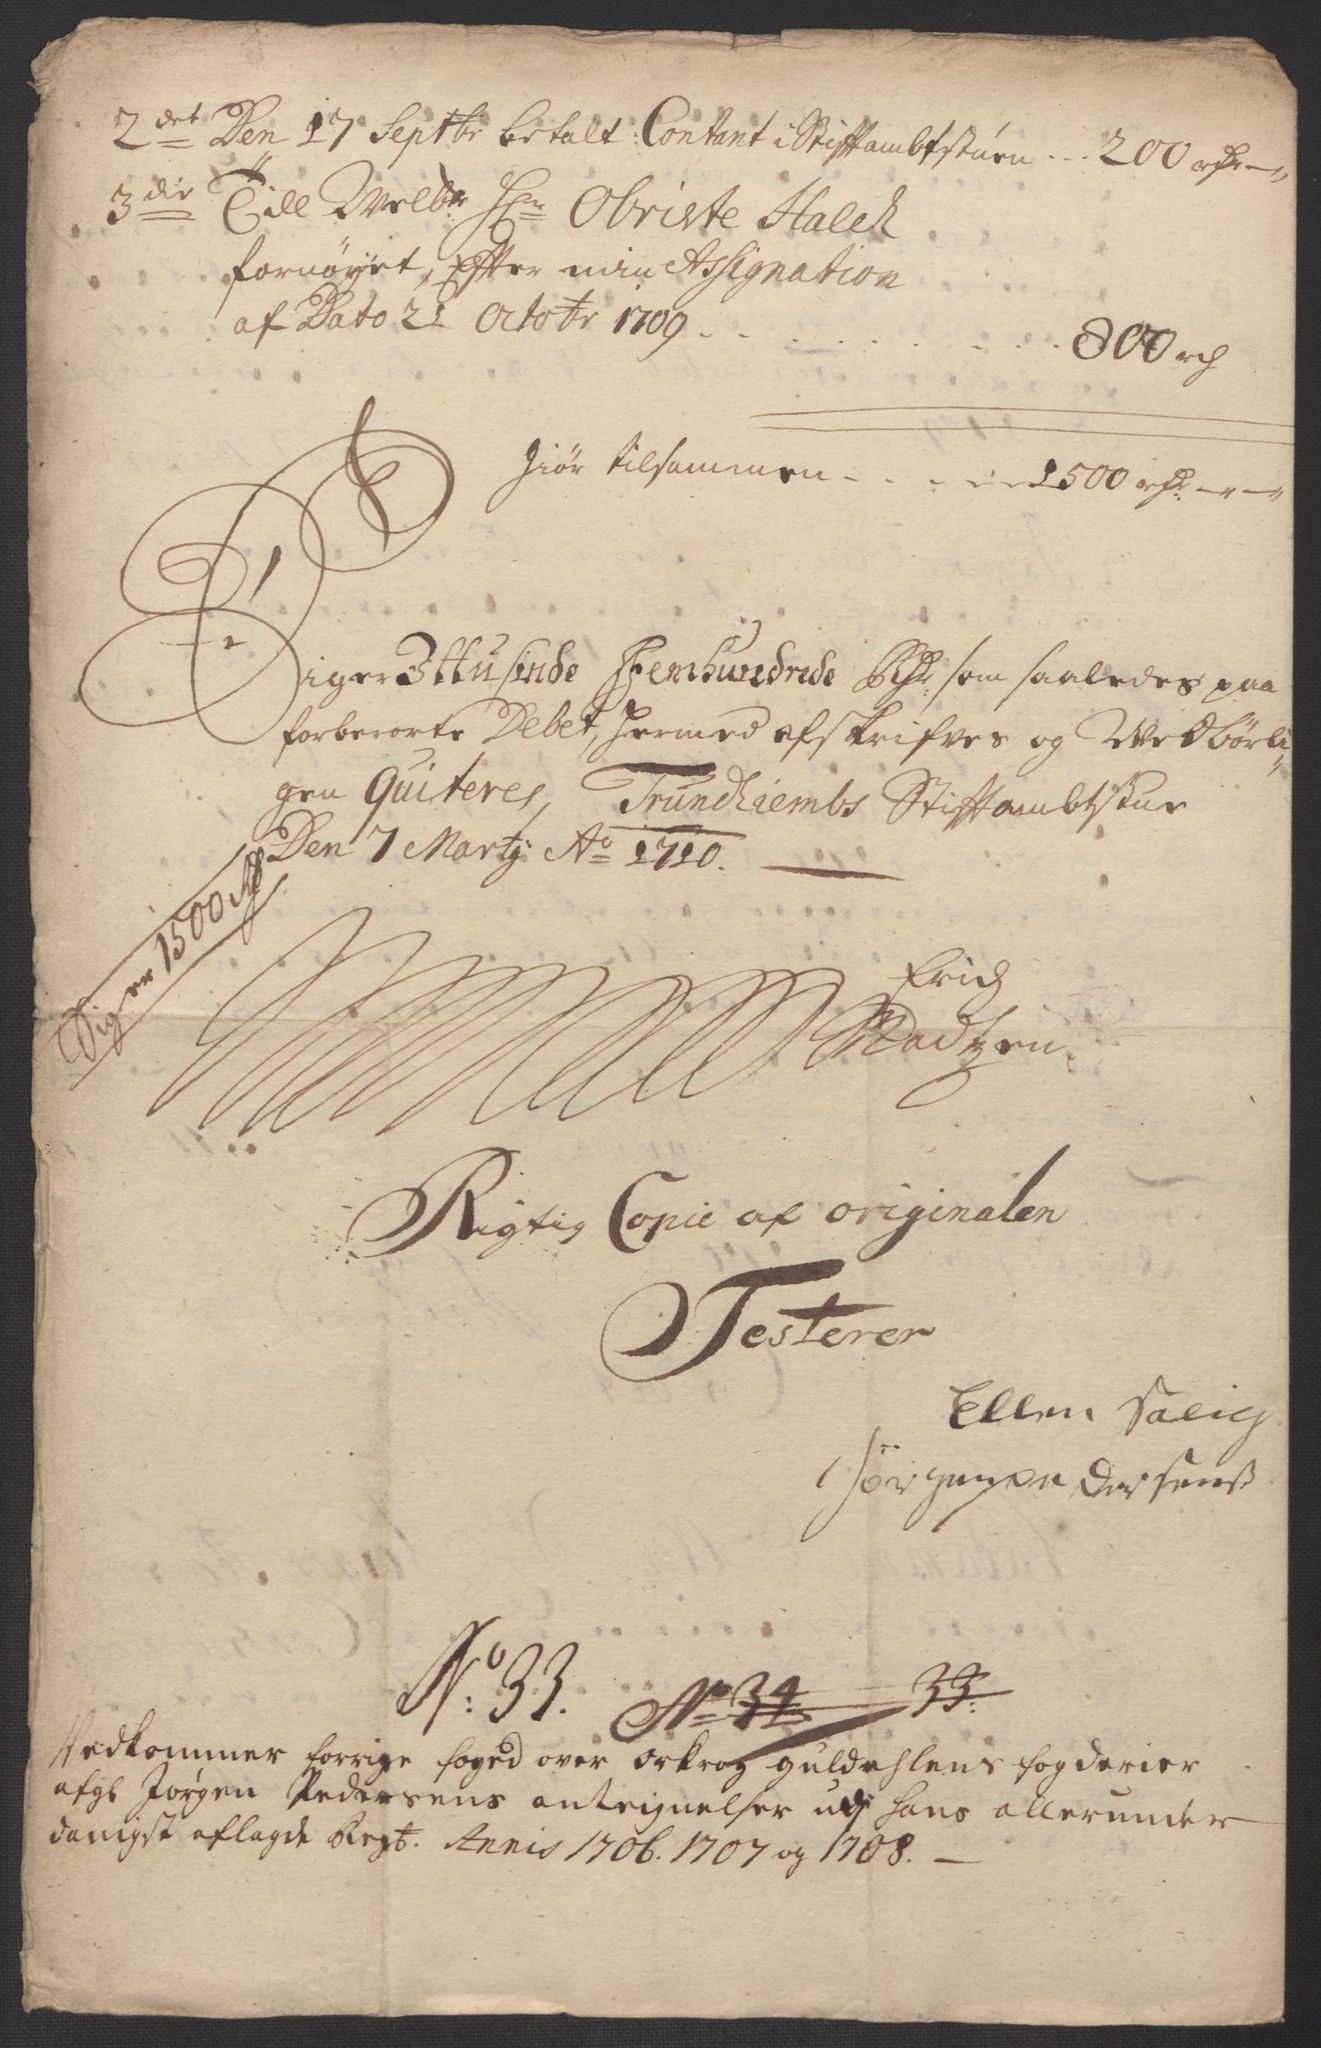 2det Den 17 Septbr betalt Contant i Stiftambtstuen ... 200 rdr
3die Till Welbr Hr Obriste Schack
fornøyet, Efter min Assignation
af Dato 21 Octobr 1709 . . . . . . . . 800 rd
Giør tilsammen . . . . . 1500 rdr
Siger Ittusinde Femhundrede Rdr som saaledes paa
forberørte Debet, hermed afskrifves og Wedbørli-
gen Quiteres, Trundhiembs Stiftambtstue
Den 7 Martij Ao 1710.
Siger 1500 Rd
Erich
Madtzen
Rigtig Copie af originalen
Testerer
Ellen Salig
Jörgen Pedersens
No: 33. No 34 33.
Vedkommer forrige foged over Ork og Guldahlens fogderier
afg: Jørgen Pedersens anteignelser udj hans allerunder
danigst aflagde Regt. Annis 1706. 1707 og 1708.